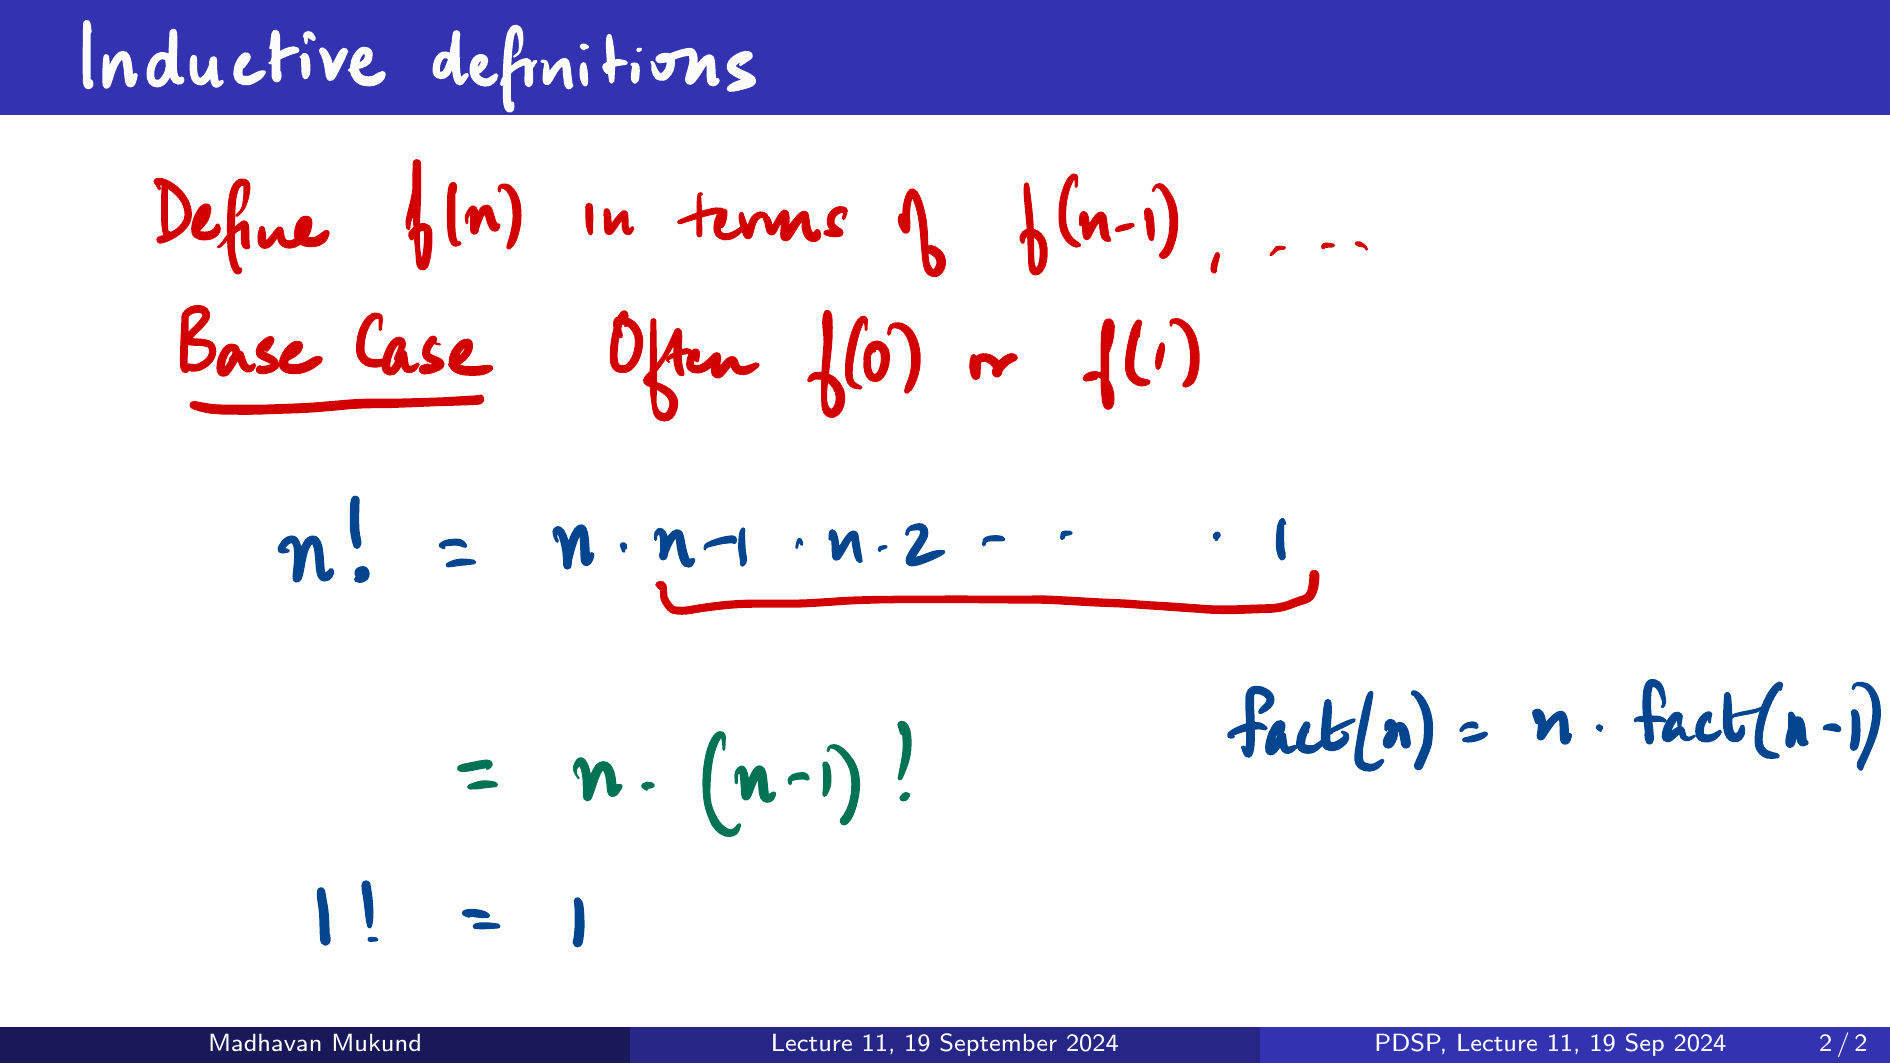 Inductive definitions
Define f(n) in terms of f(n-1), ....
Base Case Often f(0) or f(1)
n! = n · n-1 · n-2 - - · 1
= n · (n-1)!
fact(n) = n · fact(n-1)
1! = 1
Madhavan Mukund Lecture 11, 19 September 2024 PDSP, Lecture 11, 19 Sep 2024 2 / 2